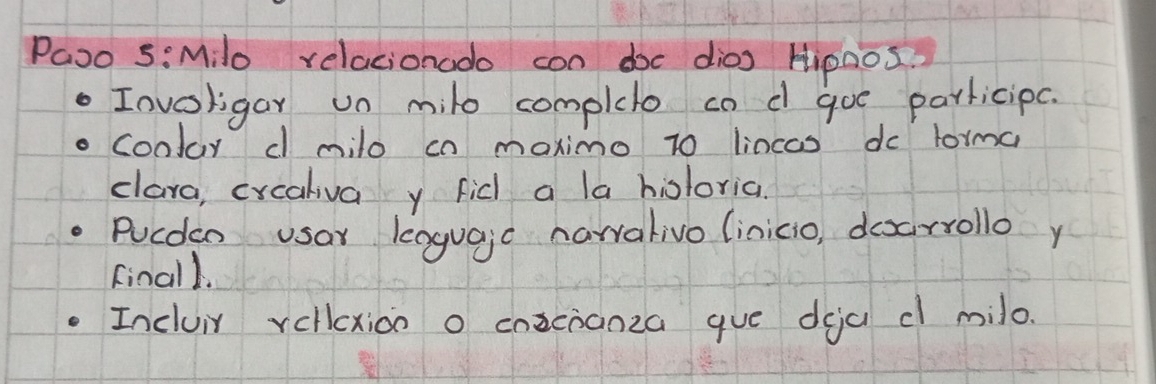 Paso 5: Mito relacionado con doc dios Hipnos.
• Investigar un mito completo en el que participe.
• Contar el mito en maximo 10 lineas de forma
clara, creativa y fiel a la historia.
• Pueden usar lenguaje narrativo (inicio, desarrollo y
final).
• Incluir reflexión o enseñanza que deja el mito.